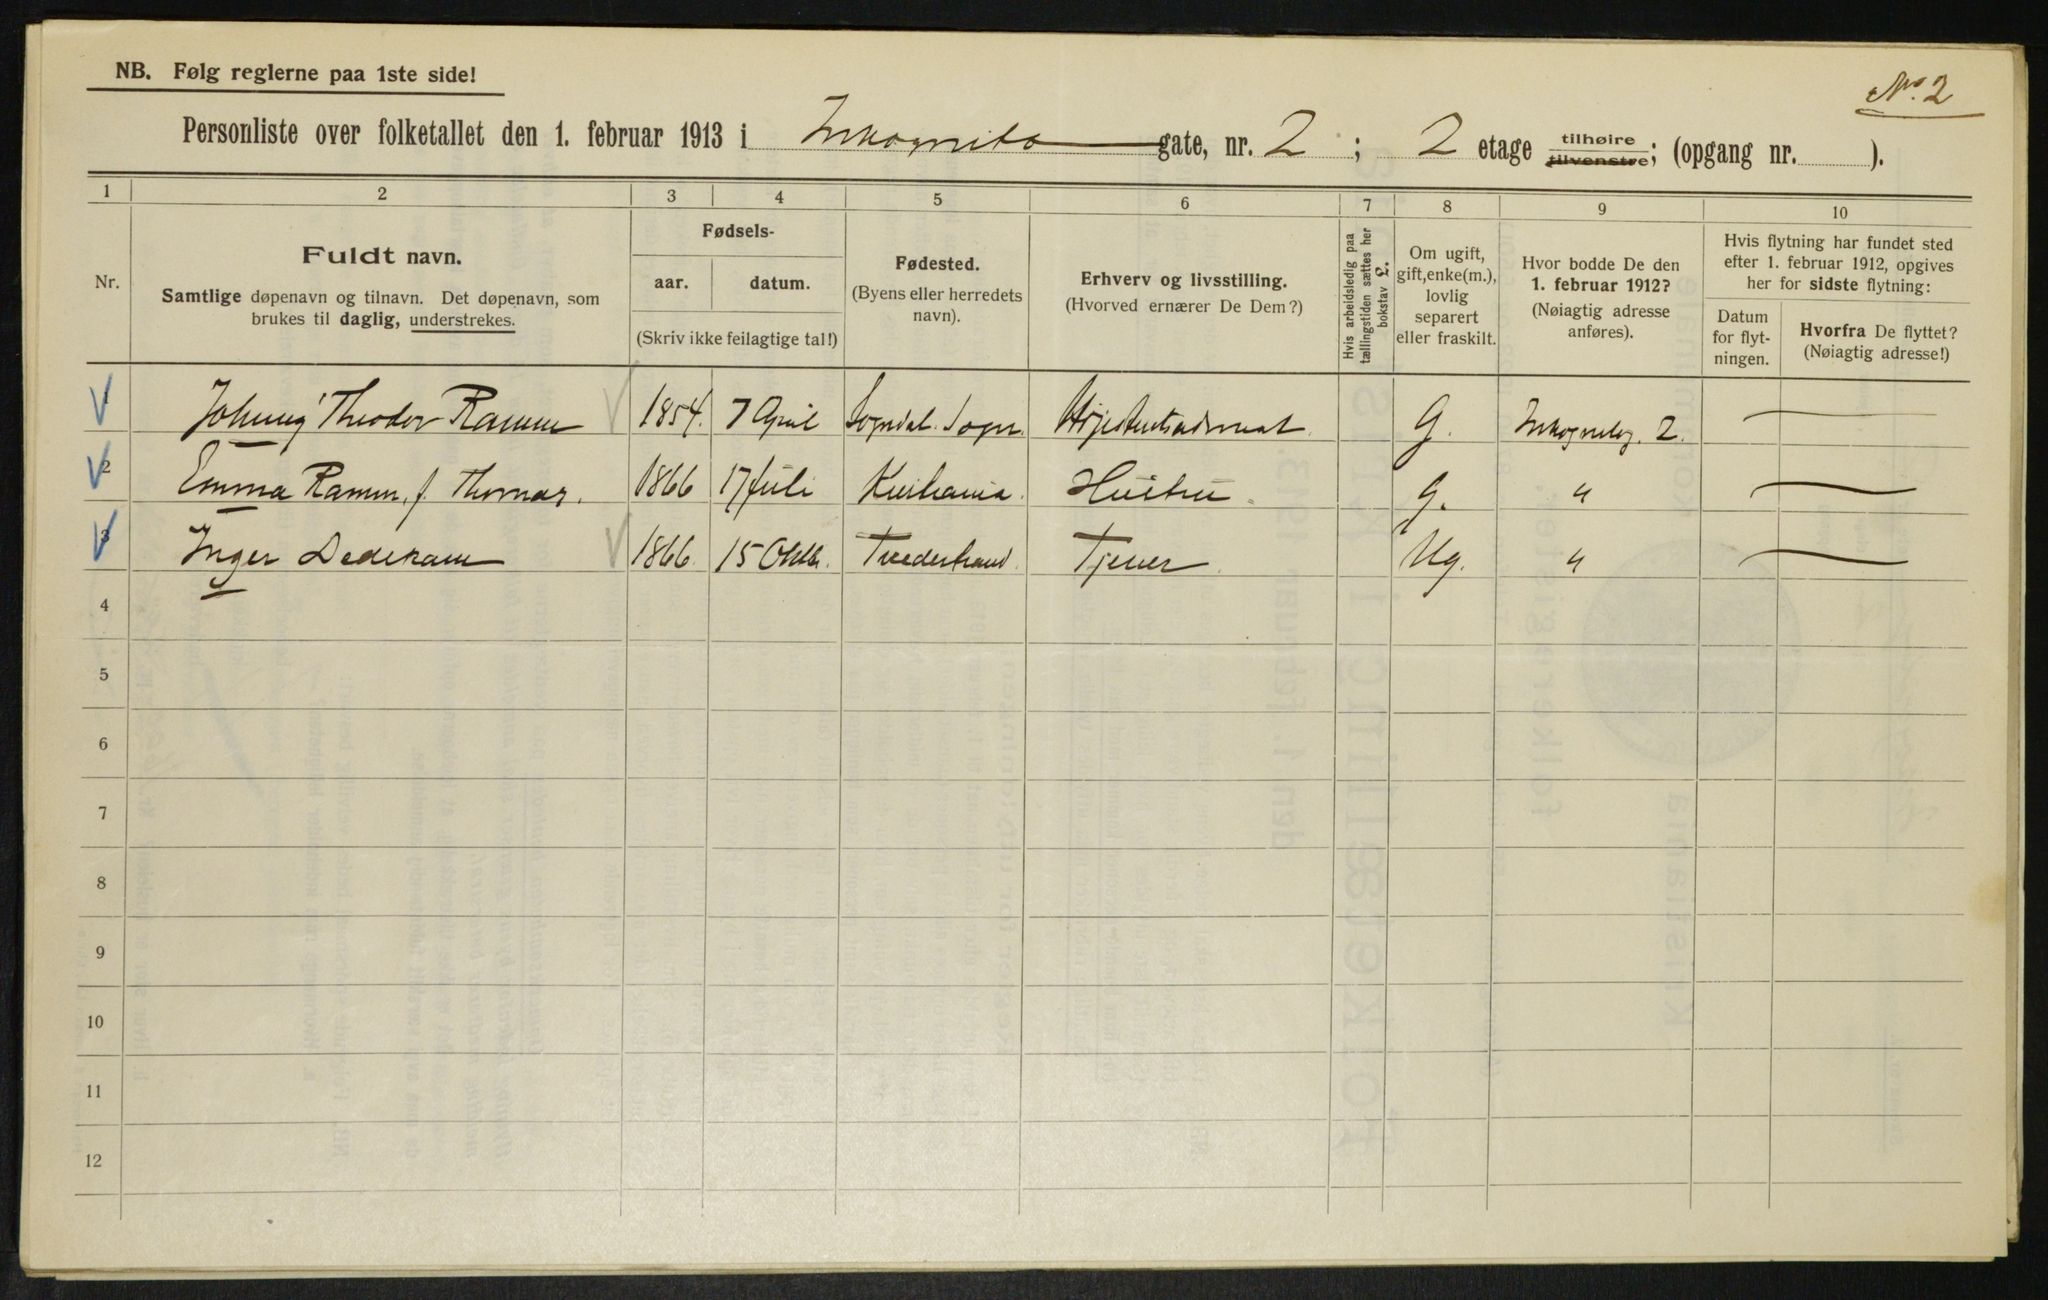 NB. Følg reglerne paa 1ste side!
No. 2
Personliste over folketallet den 1. februar 1913 i Inkognito gate, nr. 2 ; 2 etage tilhøire tilvenstre; (opgang nr. ).
1 2 3 4 5 6 7 8 9 10
Nr.
Fuldt navn.
Samtlige døpenavn og tilnavn. Det døpenavn, som
brukes til daglig, understrekes.
Fødsels-
aar. datum.
(Skriv ikke feilagtige tal!)
Fødested.
(Byens eller herredets
navn).
Erhverv og livsstilling.
(Hvorved ernærer De Dem?)
Hvis arbeidsledig paa
tællingstiden sættes her
bokstav £.
Om ugift,
gift, enke(m.),
lovlig
separert
eller fraskilt.
Hvor bodde De den
1. februar 1912?
(Nøiagtig adresse
anføres).
Hvis flytning har fundet sted
efter 1. februar 1912, opgives
her for sidste flytning:
Datum
for flyt-
ningen.
Hvorfra De flyttet?
(Nøiagtig adresse!)
1 Johnny Theodor Ramm 1854. 7 April Sogndal. Sogn. Høiesteretsadvokat. G. Inkognitog. 2. —
2 Emma Ramm, f. Thomas. 1866 17 Juli Kristiania. Hustru. G. " —
3 Inger Dedekam 1866. 15 Oktbr. Tvedestrand. Tjener. Ug. " —
4
5
6
7
8
9
10
11
12